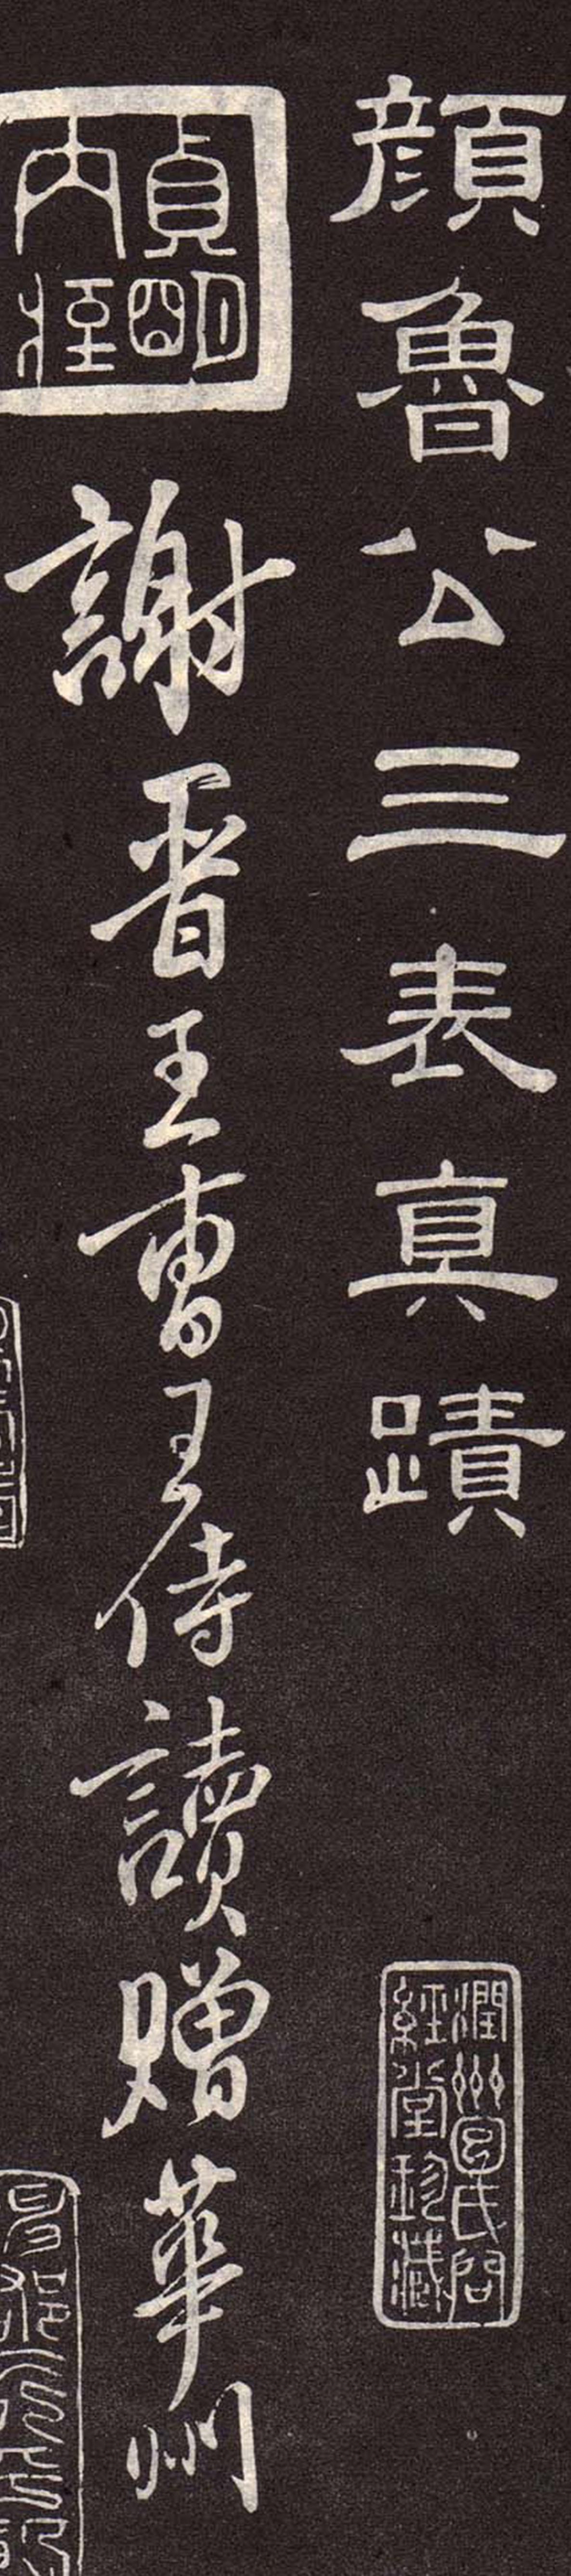 顏魯公三表真蹟
潤州囘氏問
經堂珍藏
貞明
內
謝晉王曹王侍讀贈華州